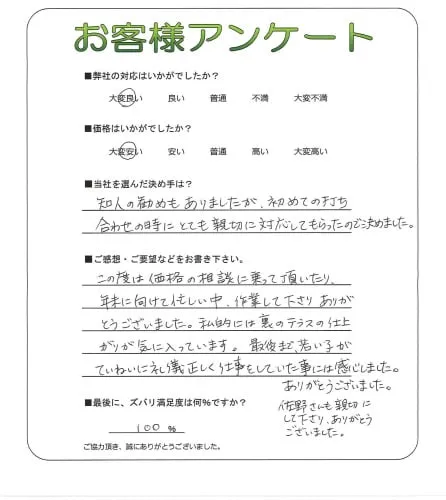 お客様アンケート
■弊社の対応はいかがでしたか?
大変良い 良い 普通 不満 大変不満
■価格はいかがでしたか?
大変安い 安い 普通 高い 大変高い
■当社を選んだ決め手は?
知人の勧めもありましたが、初めての打ち
合わせの時にとても親切に対応してもらったのご決めました。
■ご感想・ご要望などをお書き下さい。
この度は価格の相談に乗って頂いたり、
年末に向けて忙しい中、作業して下さりありが
とうございました。私的には裏のテラスの仕上
がりが気に入っています。最後まで、若い子が
ていねいに礼儀正しく仕事をしていた事には感じしました。
ありがとうございました。
■最後に、ズバリ満足度は何%ですか?
100 %
佐野さんも親切に
して下さり、ありがとう
ございました。
ご協力頂き、誠にありがとうございました。